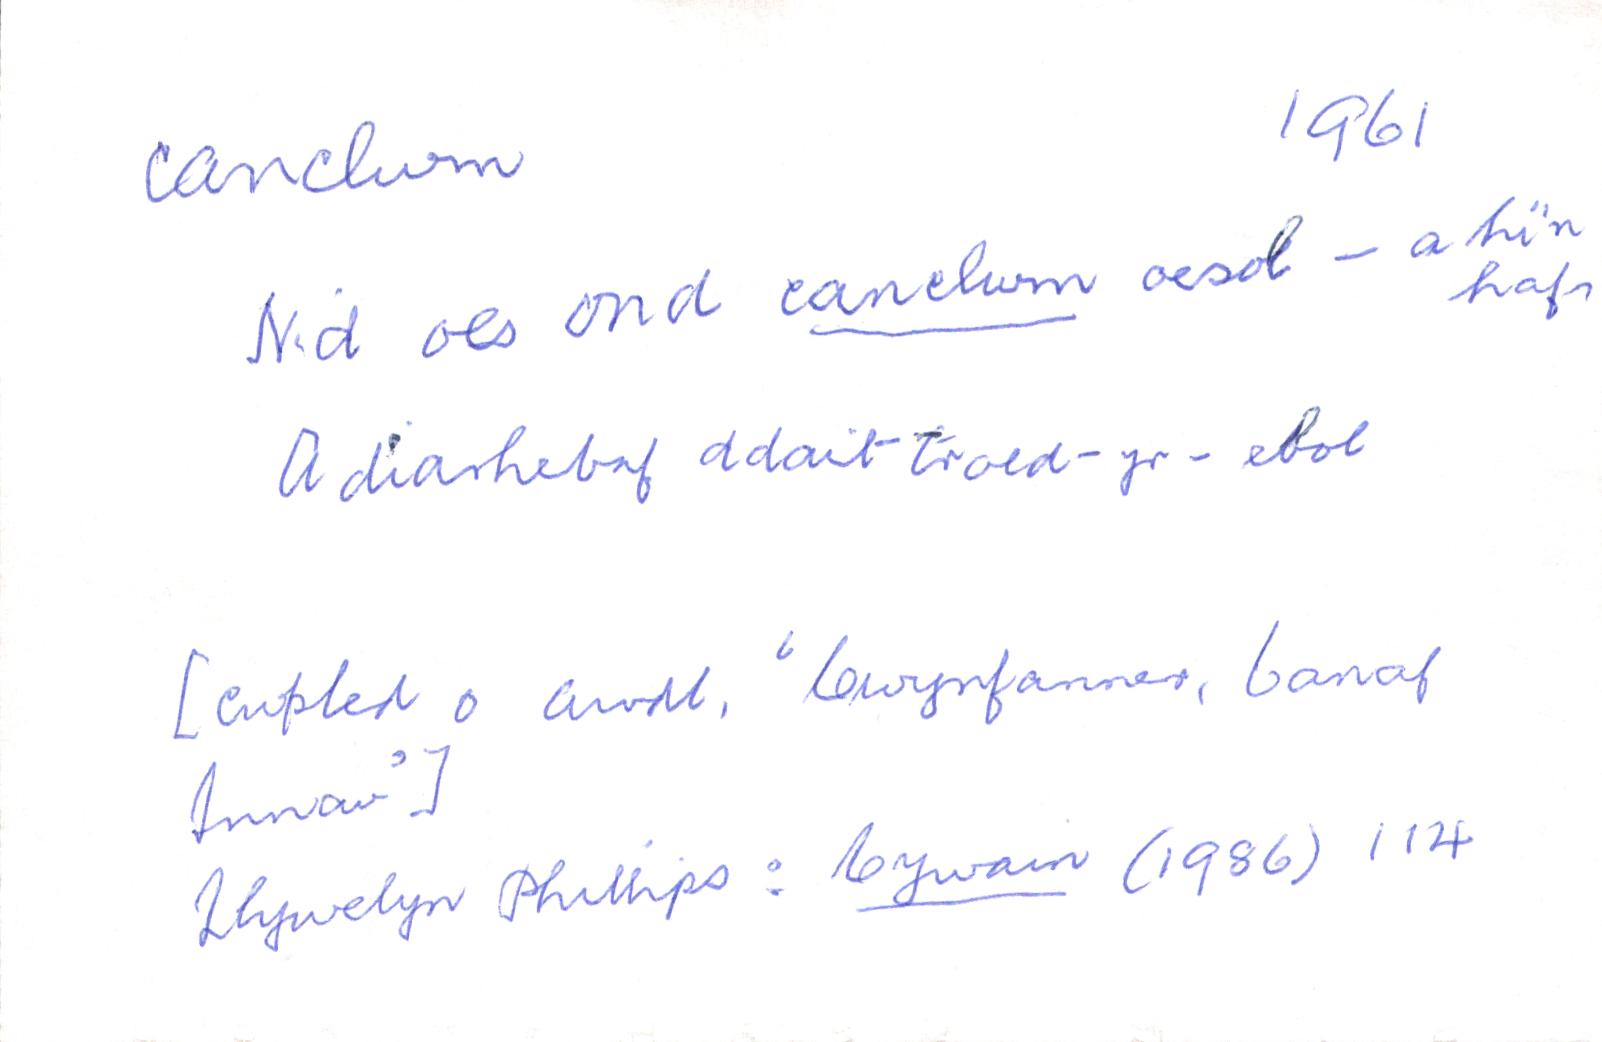 canclwm 1961
Nid oes ond canclwm oesol – a hin
hafn
A diarhebaf ddail-troed-yr-ebol
[cwpled o awdl, 'Cwynfannes, Canaf
Innau']
Llywelyn Phillips : Cywain (1986) 114